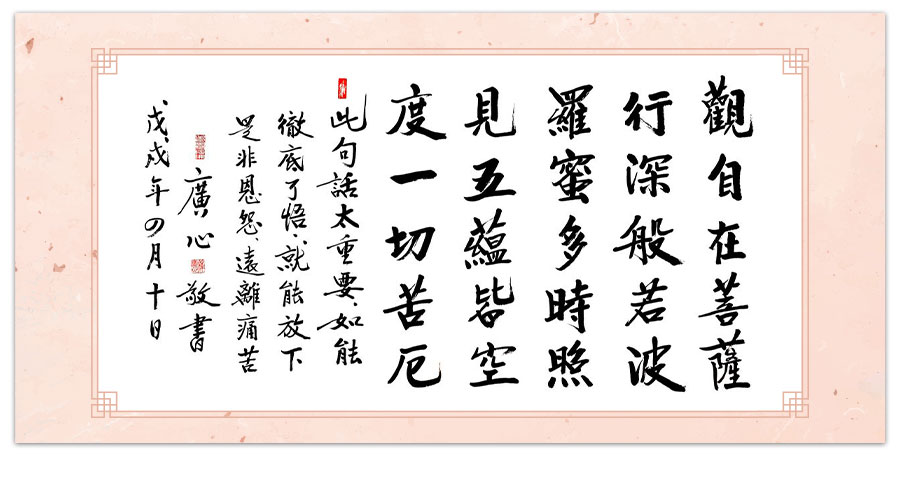 觀自在菩薩
行深般若波
羅蜜多時照
見五蘊皆空
度一切苦厄
此句話太重要、如能
徹底了悟、就能放下
是非恩怨、遠離痛苦
廣心敬書
戊戌年四月十日